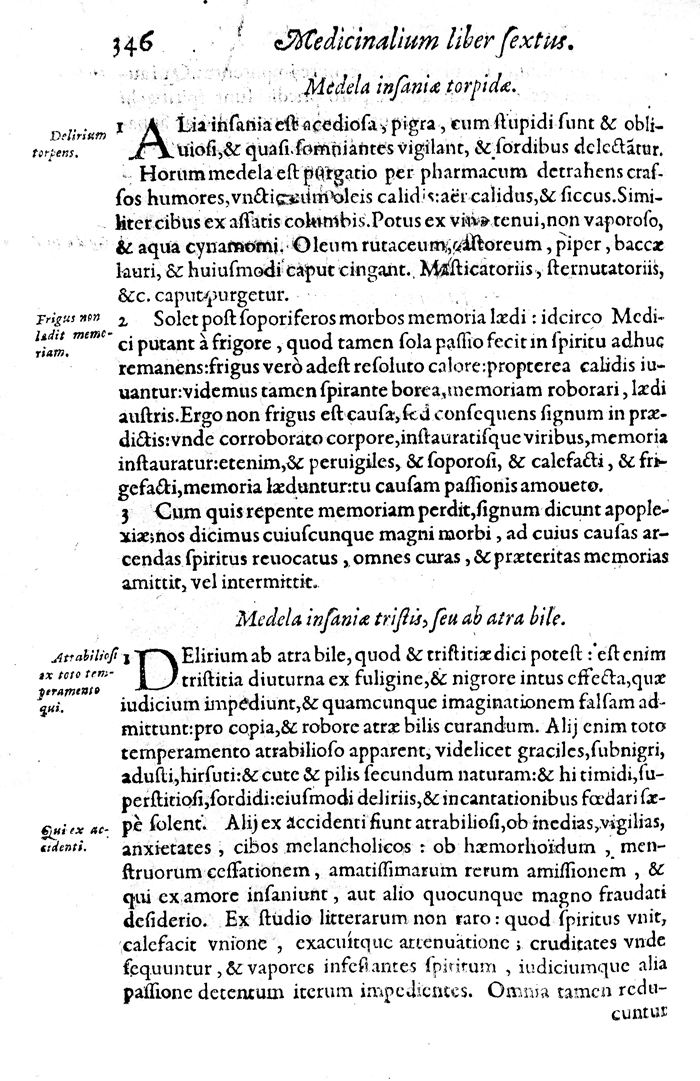 346 Medicinalium liber ſextus.
Medela inſaniæ torpidæ.
Delirium
torpens.
1 ALia inſania eſt acedioſa, pigra, cum ſtupidi ſunt & obli-
uioſi,& quaſi ſomniantes vigilant, & ſordibus delectãtur.
Horum medela eſt purgatio per pharmacum detrahens craſ-
ſos humores,vnctio cum oleis calidis:aër calidus,& ſiccus.Simi-
liter cibus ex aſſatis columbis.Potus ex vino tenui,non vaporoſo,
& aqua cynamomi. Oleum rutaceum, caſtoreum, piper, baccæ
lauri, & huiuſmodi caput cingant. Maſticatoriis, ſternutatoriis,
&c. caput purgetur.
Frigus non
lædit memo-
riam.
2 Solet poſt ſoporiferos morbos memoria lædi : idcirco Medi-
ci putant à frigore, quod tamen ſola paſſio fecit in ſpiritu adhuc
remanens:frigus verò adeſt reſoluto calore:propterea calidis iu-
uantur:videmus tamen ſpirante borea,memoriam roborari, lædi
auſtris.Ergo non frigus eſt cauſa,ſed conſequens ſignum in præ-
dictis:vnde corroborato corpore,inſtauratiſque viribus,memoria
inſtauratur:etenim,& peruigiles, & ſoporoſi, & calefacti, & fri-
gefacti,memoria læduntur:tu cauſam paſſionis amoueto.
3 Cum quis repente memoriam perdit,ſignum dicunt apople-
xiæ;nos dicimus cuiuſcunque magni morbi, ad cuius cauſas ar-
cendas ſpiritus reuocatus, omnes curas, & præteritas memorias
amittit, vel intermittit.
Medela inſaniæ triſtis, ſeu ab atra bile.
Atrabilioſi
ex toto tem-
peramento
qui.
1 DElirium ab atra bile, quod & triſtitiæ dici poteſt : eſt enim
triſtitia diuturna ex fuligine,& nigrore intus effecta,quæ
iudicium impediunt,& quamcunque imaginationem falſam ad-
mittunt:pro copia,& robore atræ bilis curandum. Alij enim toto
temperamento atrabilioſo apparent, videlicet graciles,ſubnigri,
aduſti,hirſuti:& cute & pilis ſecundum naturam:& hi timidi,ſu-
perſtitioſi,ſordidi:eiuſmodi deliriis,& incantationibus fœdari ſæ-
Qui ex ac-
cidenti.
pè ſolent. Alij ex accidenti fiunt atrabilioſi,ob inedias,vigilias,
anxietates, cibos melancholicos : ob hæmorhoïdum, men-
ſtruorum ceſſationem, amatiſſimarum rerum amiſſionem, &
qui ex amore inſaniunt, aut alio quocunque magno fraudati
deſiderio. Ex ſtudio litterarum non raro : quod ſpiritus vnit,
calefacit vnione, exacuitque attenuatione ; cruditates vnde
ſequuntur, & vapores infeſtantes ſpiritum, iudiciumque alia
paſſione detentum iterum impedientes. Omnia tamen redu-
cuntur